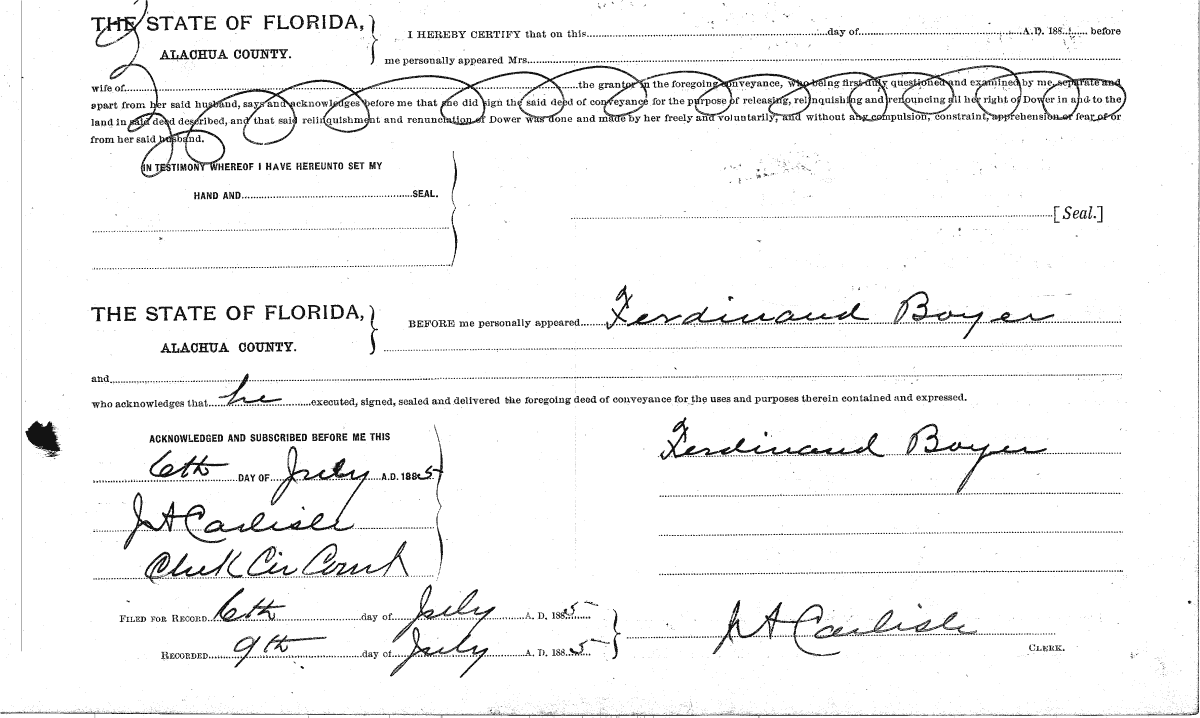 THE STATE OF FLORIDA,
ALACHUA COUNTY.
I HEREBY CERTIFY that on this day of A.D. 188 before
me personally appeared Mrs.
wife of the grantor in the foregoing conveyance, who being first duly questioned and examined by me, separate and
apart from her said husband, says and acknowledges before me that she did sign the said deed of conveyance for the purpose of releasing, relinquishing and renouncing all her right of Dower in and to the
land in said deed described, and that said relinquishment and renunciation of Dower was done and made by her freely and voluntarily, and without any compulsion, constraint, apprehension or fear of or
from her said husband.
IN TESTIMONY WHEREOF I HAVE HEREUNTO SET MY
HAND AND SEAL.
[Seal.]
THE STATE OF FLORIDA,
ALACHUA COUNTY.
BEFORE me personally appeared Ferdinand Boyer
and
who acknowledges that he executed, signed, sealed and delivered the foregoing deed of conveyance for the uses and purposes therein contained and expressed.
ACKNOWLEDGED AND SUBSCRIBED BEFORE ME THIS
6th DAY OF July A.D. 1885
J A Carlisle
Clerk Cir Court
Ferdinand Boyer
FILED FOR RECORD 6th day of July A. D. 1885
RECORDED 9th day of July A. D. 1885
J A Carlisle
CLERK.